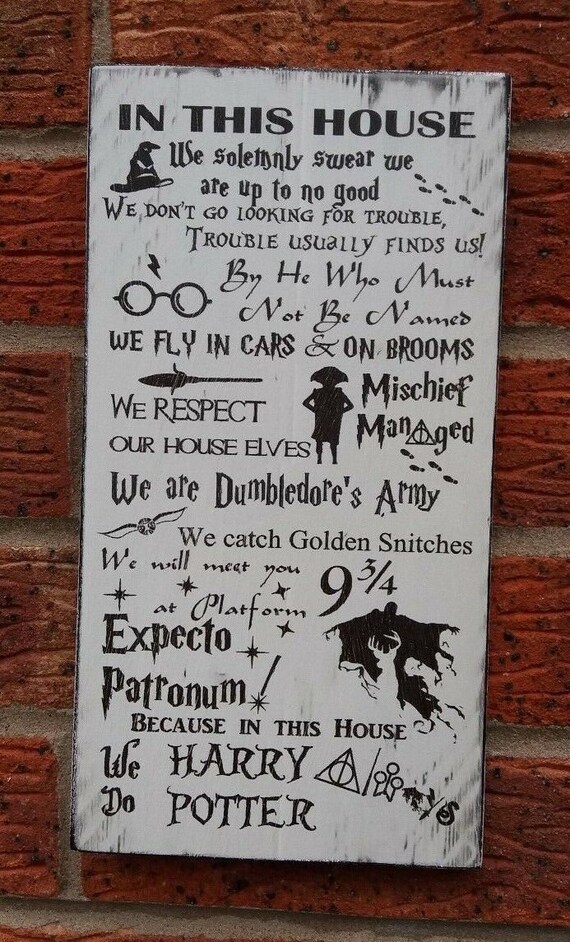 IN THIS HOUSE
We solemnly swear we
are up to no good
WE DON'T GO LOOKING FOR TROUBLE,
TROUBLE USUALLY FINDS US!
By He Who Must
Not Be Named
WE FLY IN CARS & ON BROOMS
WE RESPECT
OUR HOUSE ELVES
Mischief
Managed
We are Dumbledore's Army
We catch Golden Snitches
We will meet you
at Platform
9 3/4
Expecto
Patronum
BECAUSE IN THIS HOUSE
We HARRY
Do POTTER